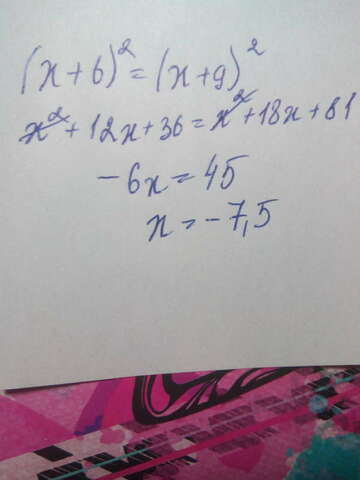 (x+6)² = (x+9)²
x² + 12x + 36 = x² + 18x + 81
-6x = 45
x = -7,5